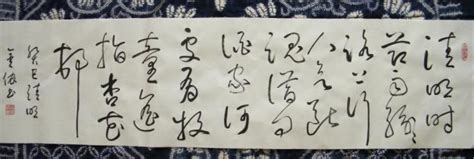 清明时
节雨纷纷
路上行
人欲断
魂借问
酒家何
处有牧
童遥
指杏花
村
癸巳清明
书